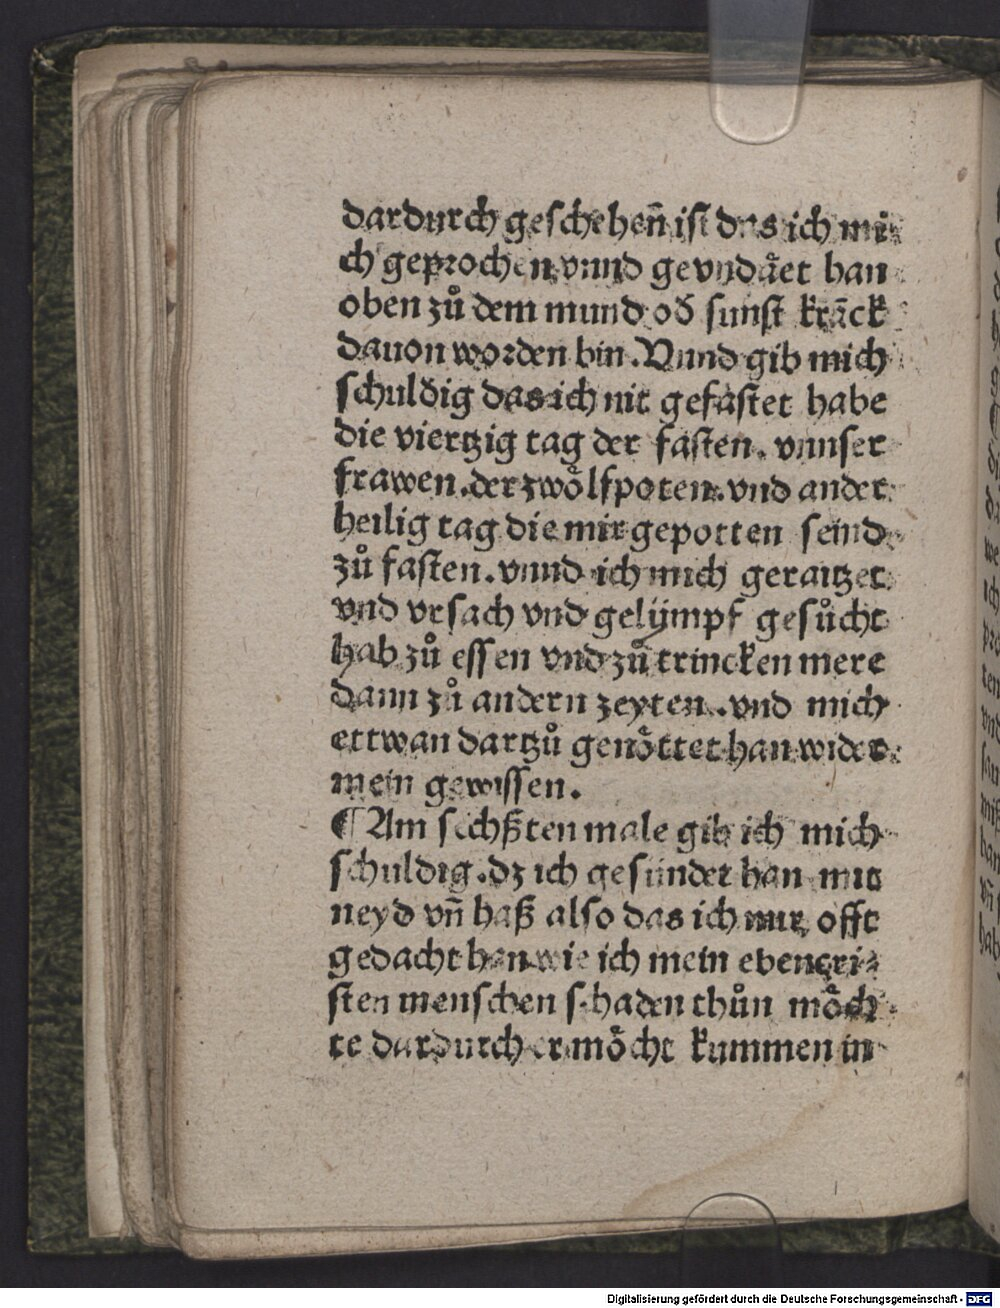 dardurch geschehen̄ ist das ich mi
ch geprochen vnnd gevndäet han
oben zů dem mund od̕ sunst krāck
dauon worden bin. Vnnd gib mich
schuldig das ich nit gefastet habe
die viertzig tag der fasten. vnnser
frawen. der zwoͤlfpoten. vnd ander
heilig tag die mir gepotten seind
zů fasten. vnnd ich mich geraitzet
vnd vrsach vnd gelÿmpf gesůcht
hab zů essen vnd zů trincken mere
dann zů andern zeyten. vnd mich
ettwan dartzů genoͤttet han wider
mein gewissen.
¶ Am sechßten male gib ich mich
schuldig. dz ich gesundet han mit
neyd vn̄ haß also das ich mir offt
gedacht han wie ich mein ebencri⸗
sten menschen schaden thůn moͤch
te dardurch er moͤcht kummen in
Digitalisierung gefördert durch die Deutsche Forschungsgemeinschaft - DFG